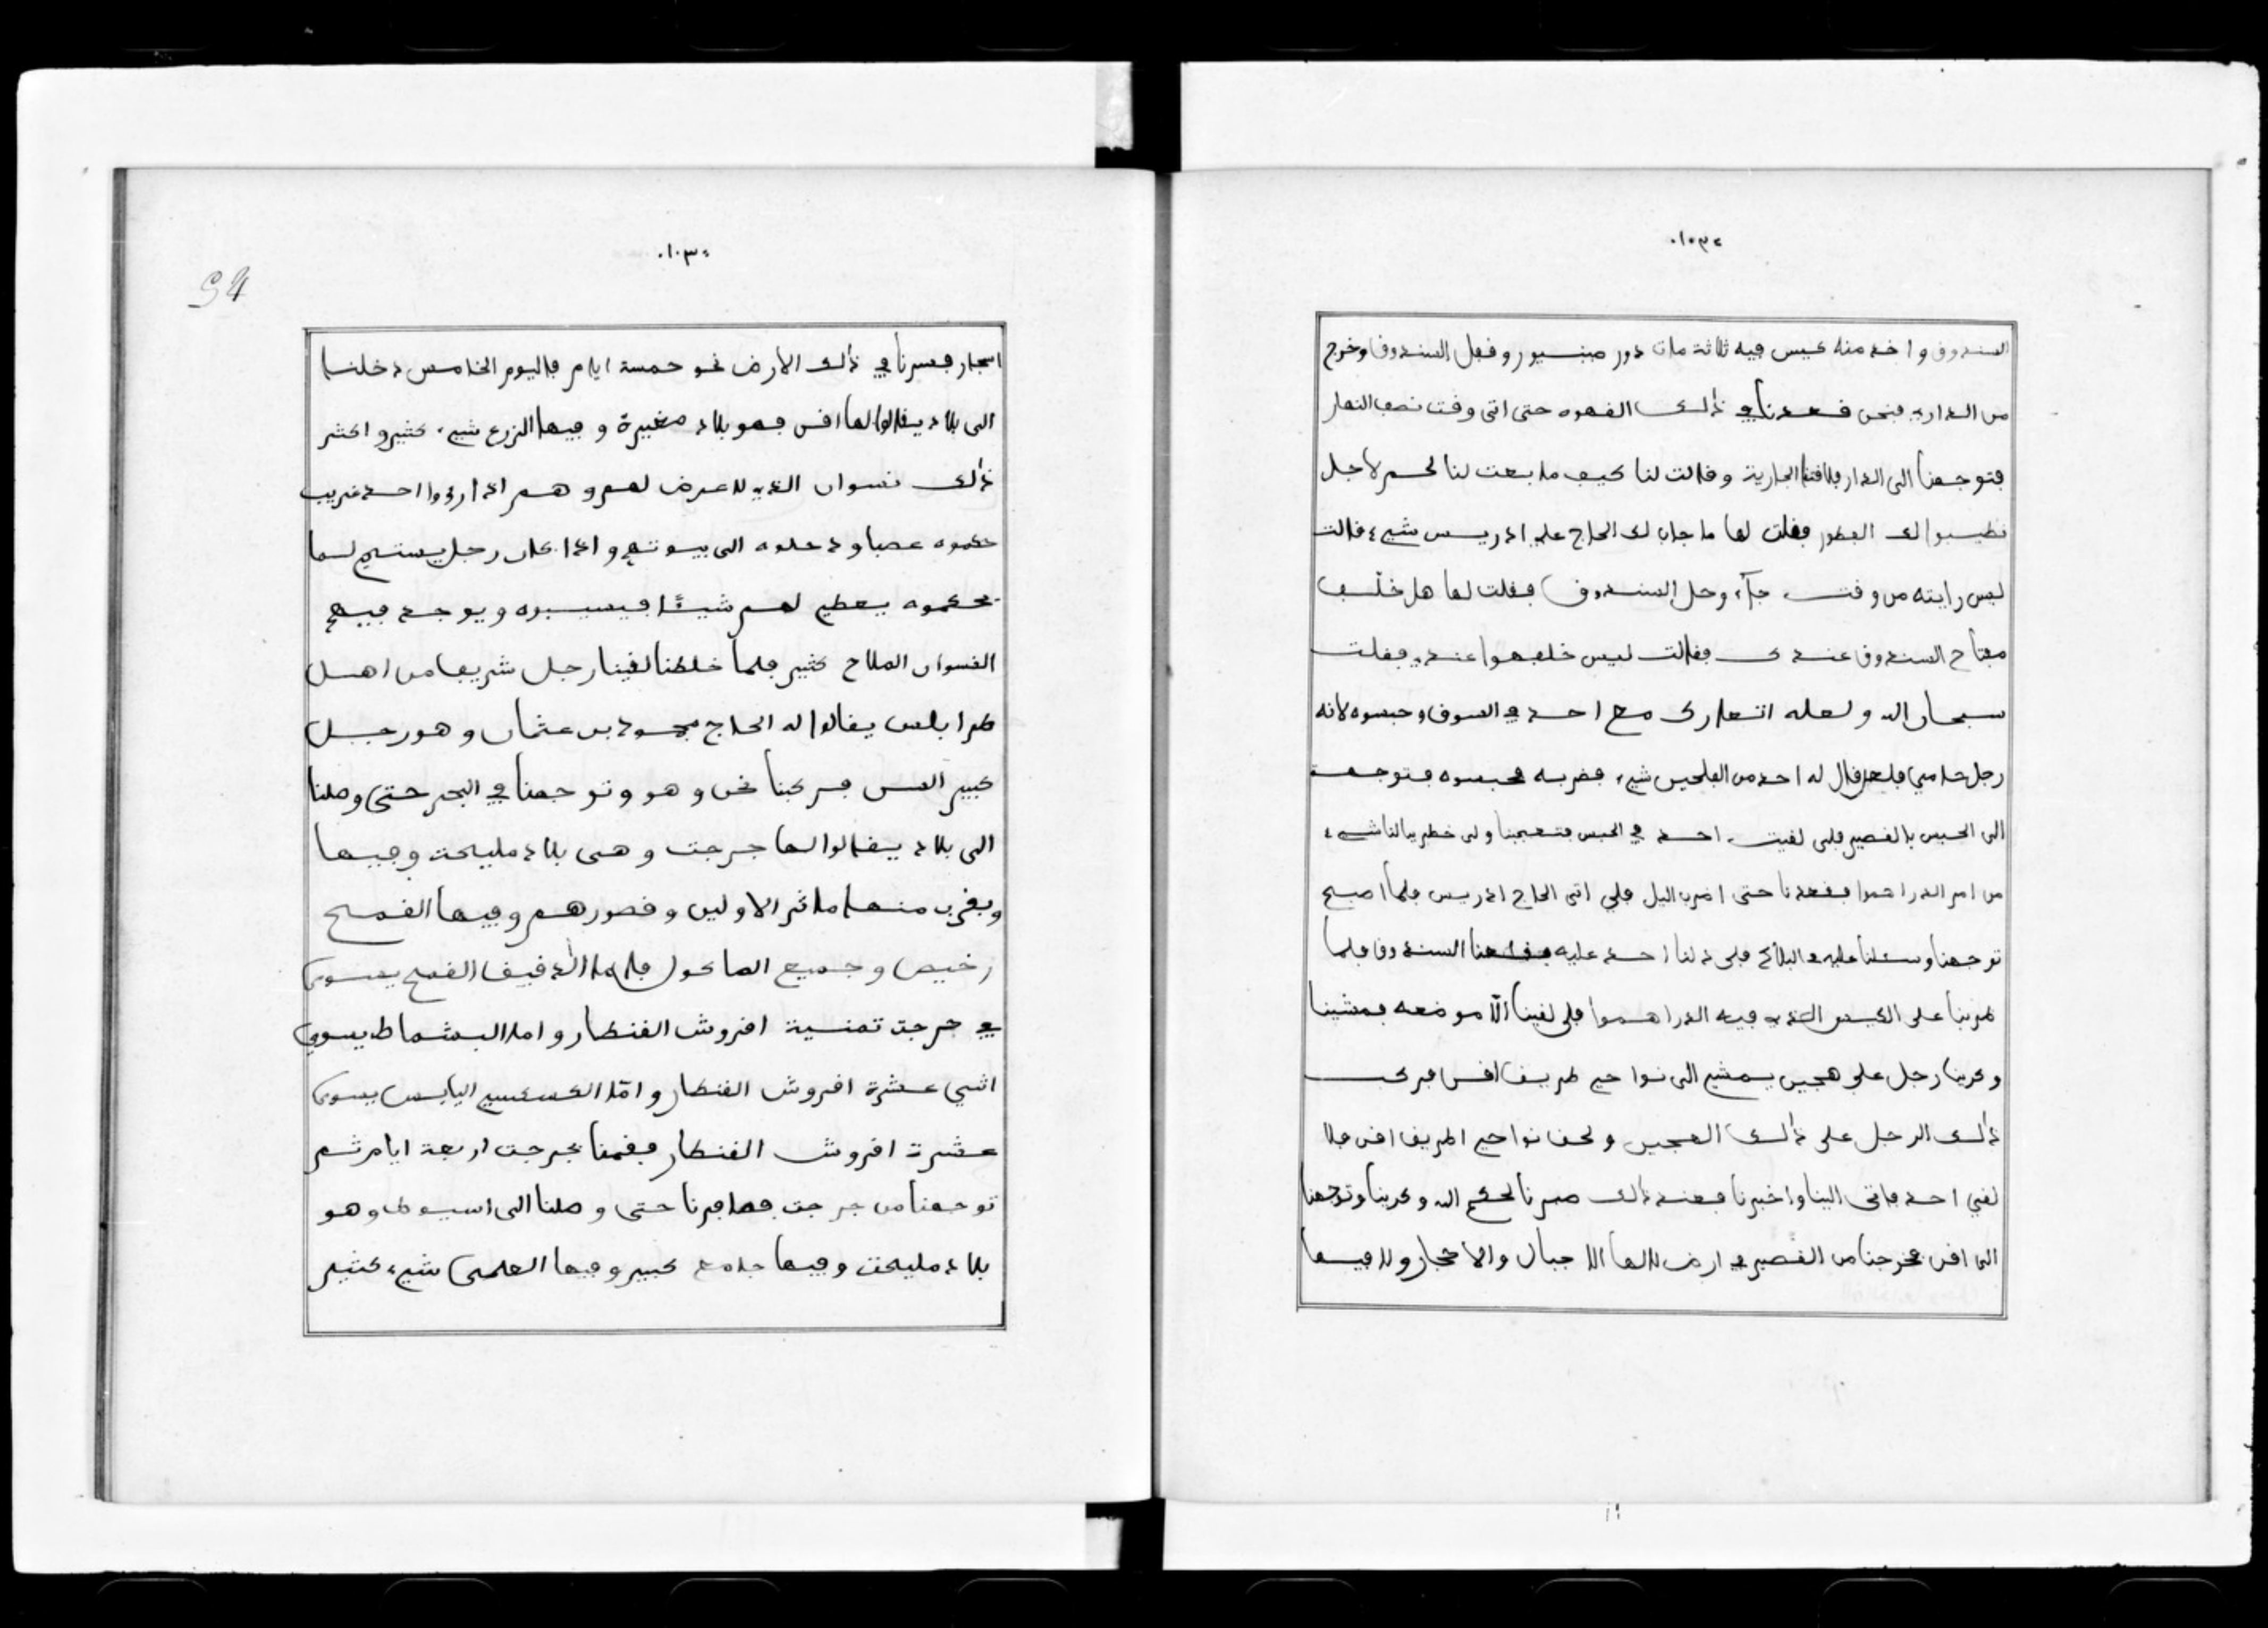 ٠١٠٣٠
السندوق واخد منه كيس فيه ثلاثة مات دور مينسيور وقفل السندوق وخرج
من الدار ونحن قعدنا في ذلك القهوه حتى اتى وقت نصف النهار
فتوجهنا الى الدار فلاقتنا الجارية وقالت لنا كيف ما بعت لنا لحم لاجل
نطيبوا لك الفطور فقلت لها ما جاب لك الحاج علي ادريس شيء قالت
ليس رايته من وقت جآء وحل السندوق فقلت لها هل خلّف
مفتاح السندوق عندك فقالت ليس خلفهوا عندي فقلت
سبحان الله ولعله اتعارك مع احد في السوق وحبسوه لانه
رجل حامي فلعل قال له احد من الفلحين شيء فضربه فحبسوه فتوجهت
الى الحبس بالقصير فلم لقيت احد في الحبس فتعجبنا ولم خطر ببالنا شيء
من امر الدراهموا فقعدنا حتى اضرب اليل فلم اتى الحاج ادريس فلما اصبح
توجهنا وسئلنا عليه في البلاد فلم دلنا احد عليه فقلعنا السندوق فلما
ضربنا على الكيس الذي فيه الدراهموا فلم لقينا الّا موضعه فمشينا
وكرينا رجل على هجين يمشي الى نواحي طريق اقنى فركب
ذلك الرجل على ذلك الهجين ولحق نواحي الطريق اقنى فلا
لقي احد فاتى الينا واخبرنا فعند ذلك صبرنا لحكم الله وكرينا وتوجهنا
الى اقنى فخرجنا من القصير في ارض لالها الا جبال والاحجار ولا فيها
٠١٠٣٠
94
اسجار فسرنا في ذلك الارض نحو خمسة ايام فاليوم الخامس دخلنا
الى بلاد يقالوا لها اقنى فهو بلاد صغيرة وفيها الزرع شيء كثير واكثر
ذلك نسوان الذي لا عرض لهم وهم اذا رءوا احد غريب
حكموه غصبا ودخلوه الى بيوتهم واذا كان رجل يستحي لما
يحكموه يعطي لهم شيئًا فيسيبوه ويوجد فيهم
النسوان الملاح كثير فلما خلطنا لقينا رجل شريف من اهل
طرابلس يقالوا له الحاج محمود بن عثمان وهو رجل
كبير السن فركبنا نحن وهو وتوجهنا في البحر حتى وصلنا
الى بلاد يقالوا لها جرجت وهي بلاد مليحة وفيها
وبقرب منها ماثر الاولين وقصورهم وفيها القمح
رخيص وجميع الماكول فاما الدقيق القمح يسوى
في جرجت ثمنية اقروش القنطار واما البشماط يسوى
اثنى عشرة اقروش القنطار وامّا الكسكسي اليابس يسوى
عشرة اقروش القنطار فقمنا بجرجت اربعة ايام ثم
توجهنا من جرجت فصافرنا حتى وصلنا الى اسيوط وهو
بلاد مليحت وفيها جامع كبير وفيها العلمى شيء كثير